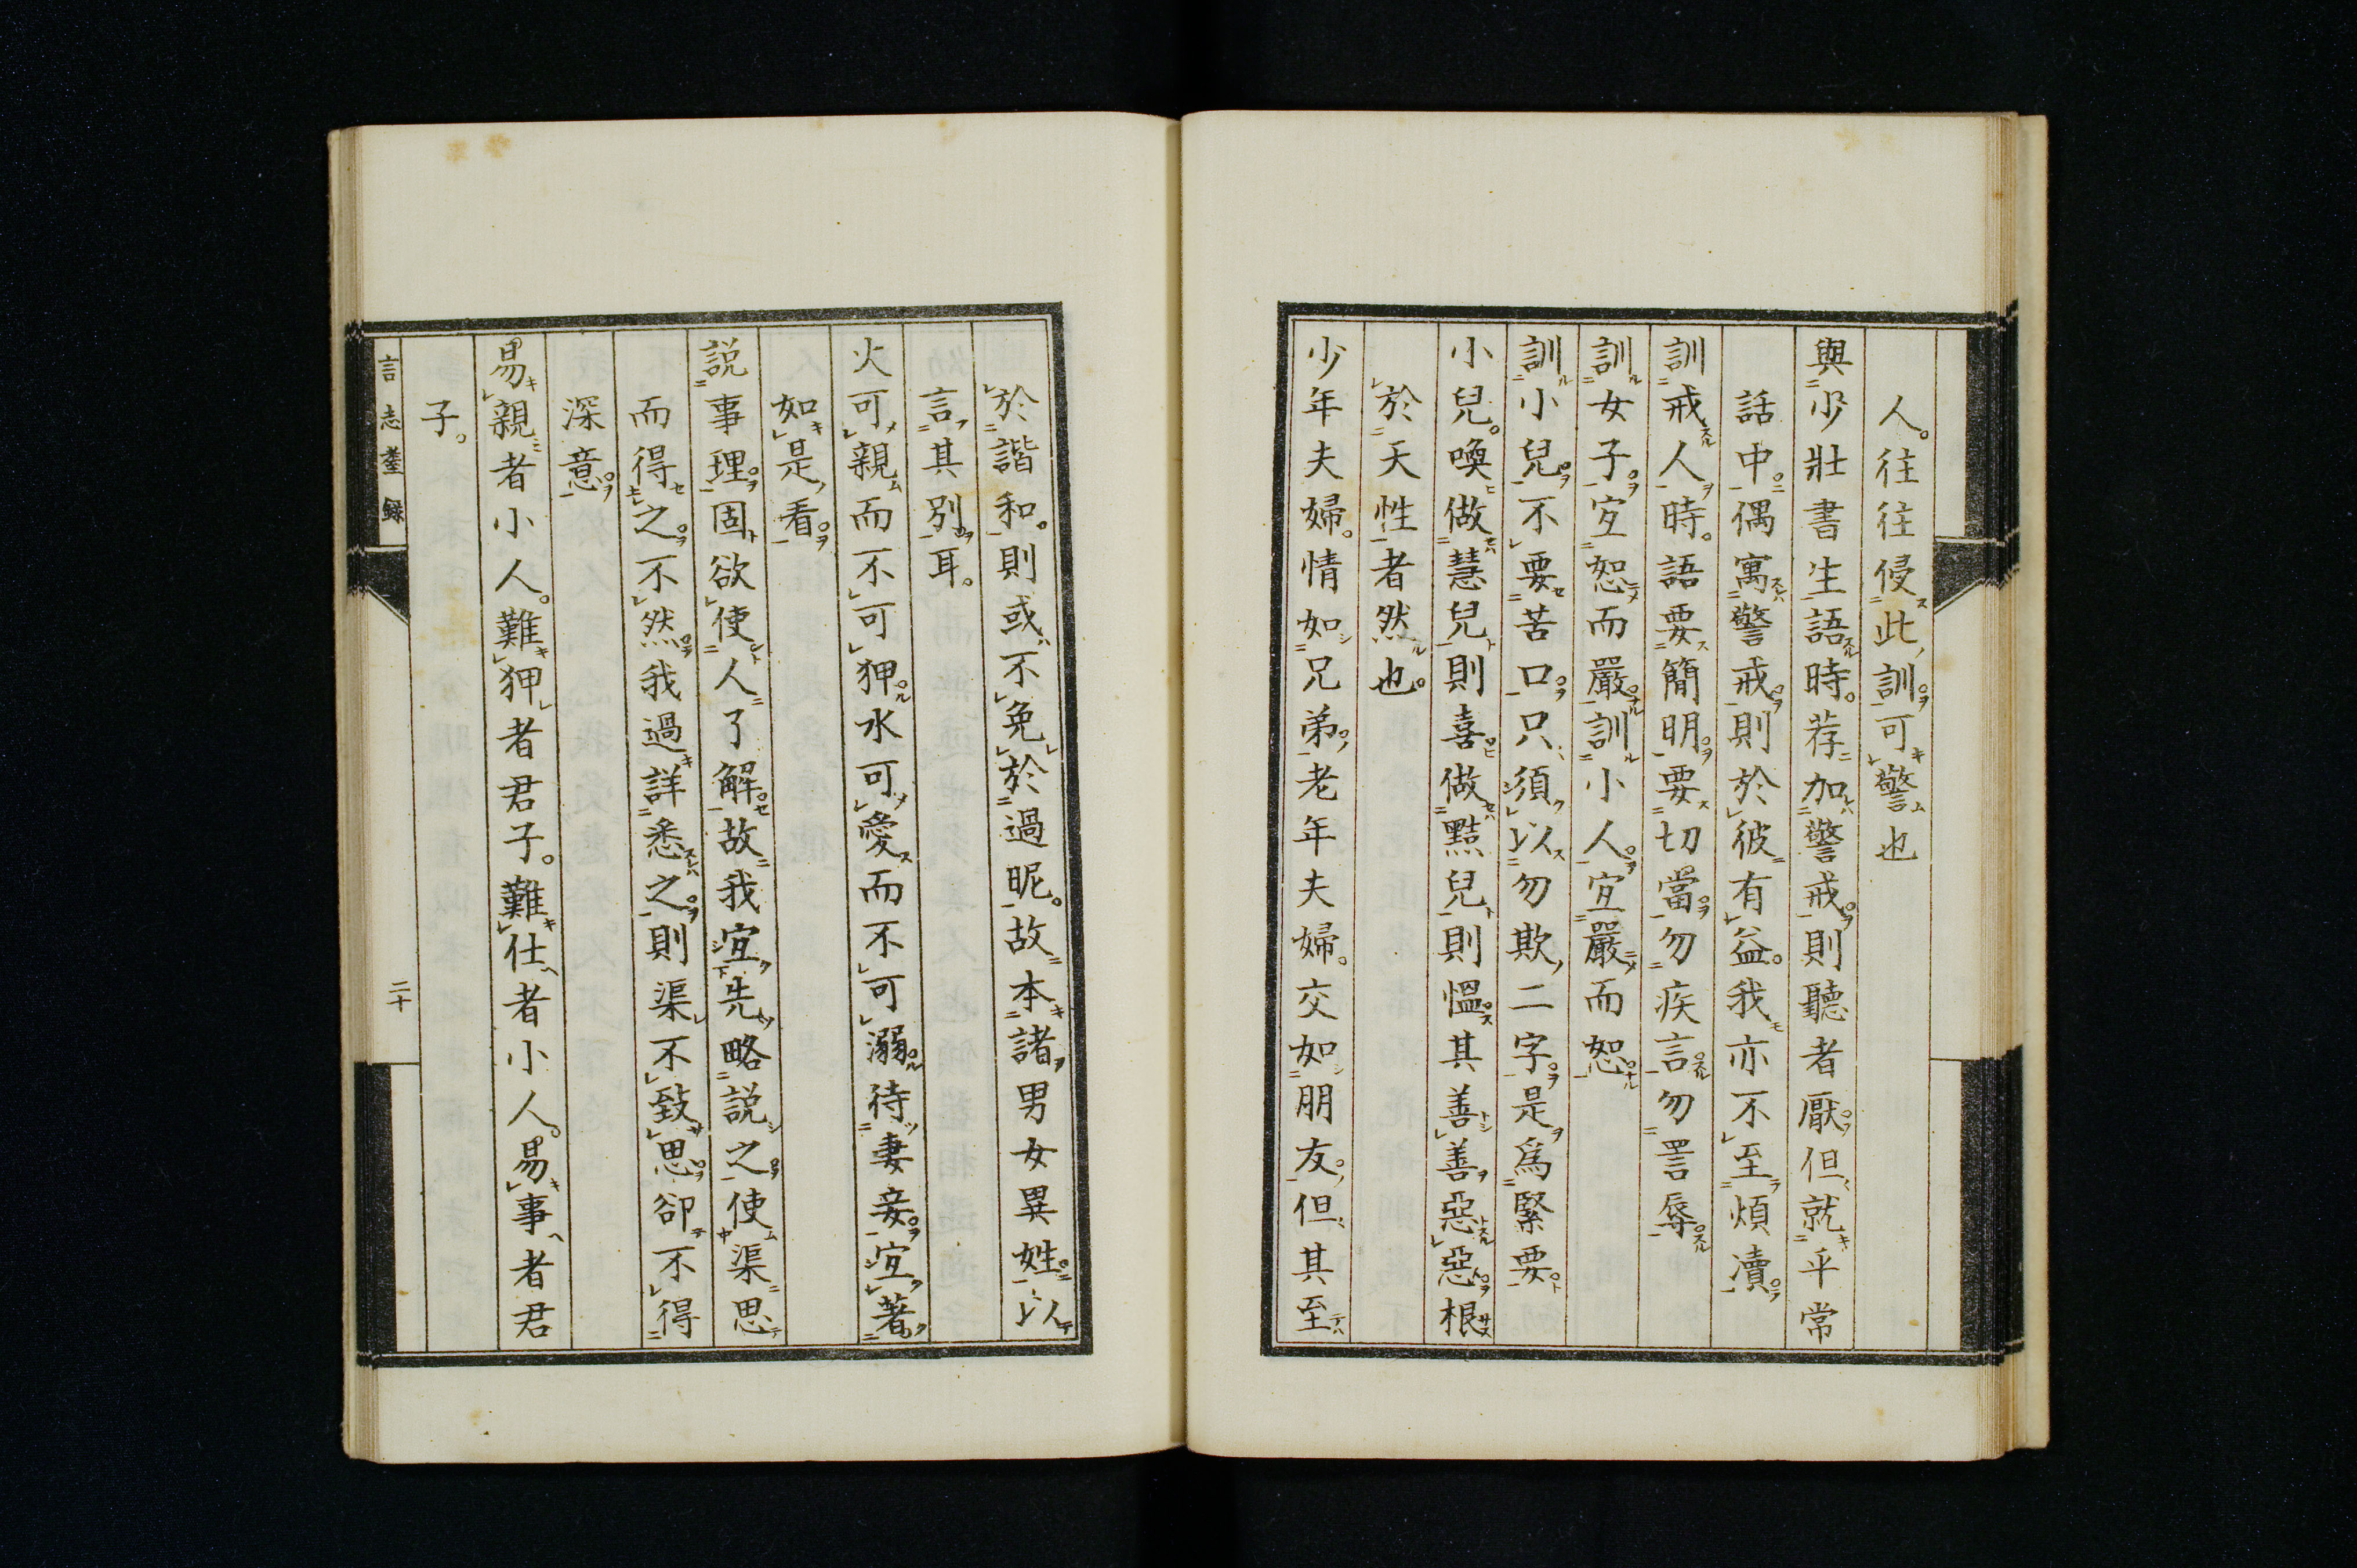 人。往往侵此訓可警也
與少壯書生語時。荐加警戒則聽者厭但就平常
話中偶寓警戒則於彼有益。我亦不至煩瀆
訓戒人時。語要簡明要切當勿疾言勿詈辱
訓女子宜恕而嚴訓小人宜嚴而恕
訓小兒不要苦口只須以勿欺二字是爲緊要
小兒。喚做慧兒則喜做黠兒則慍其善善惡惡根
於天性者然也。
少年夫婦。情如兄弟老年夫婦。交如朋友但其至
於諧和。則或不免於過昵。故本諸男女異姓以
言其別耳。
火可親而不可狎水可愛而不可溺待妻妾宜著
如是看
説事理固欲使人了解故我宜先略説之使渠思
而得之不然我過詳悉之則渠不致思卻不得
深意
易親者小人。難狎者君子。難仕者小人。易事者君
子。
言志耋録
二十